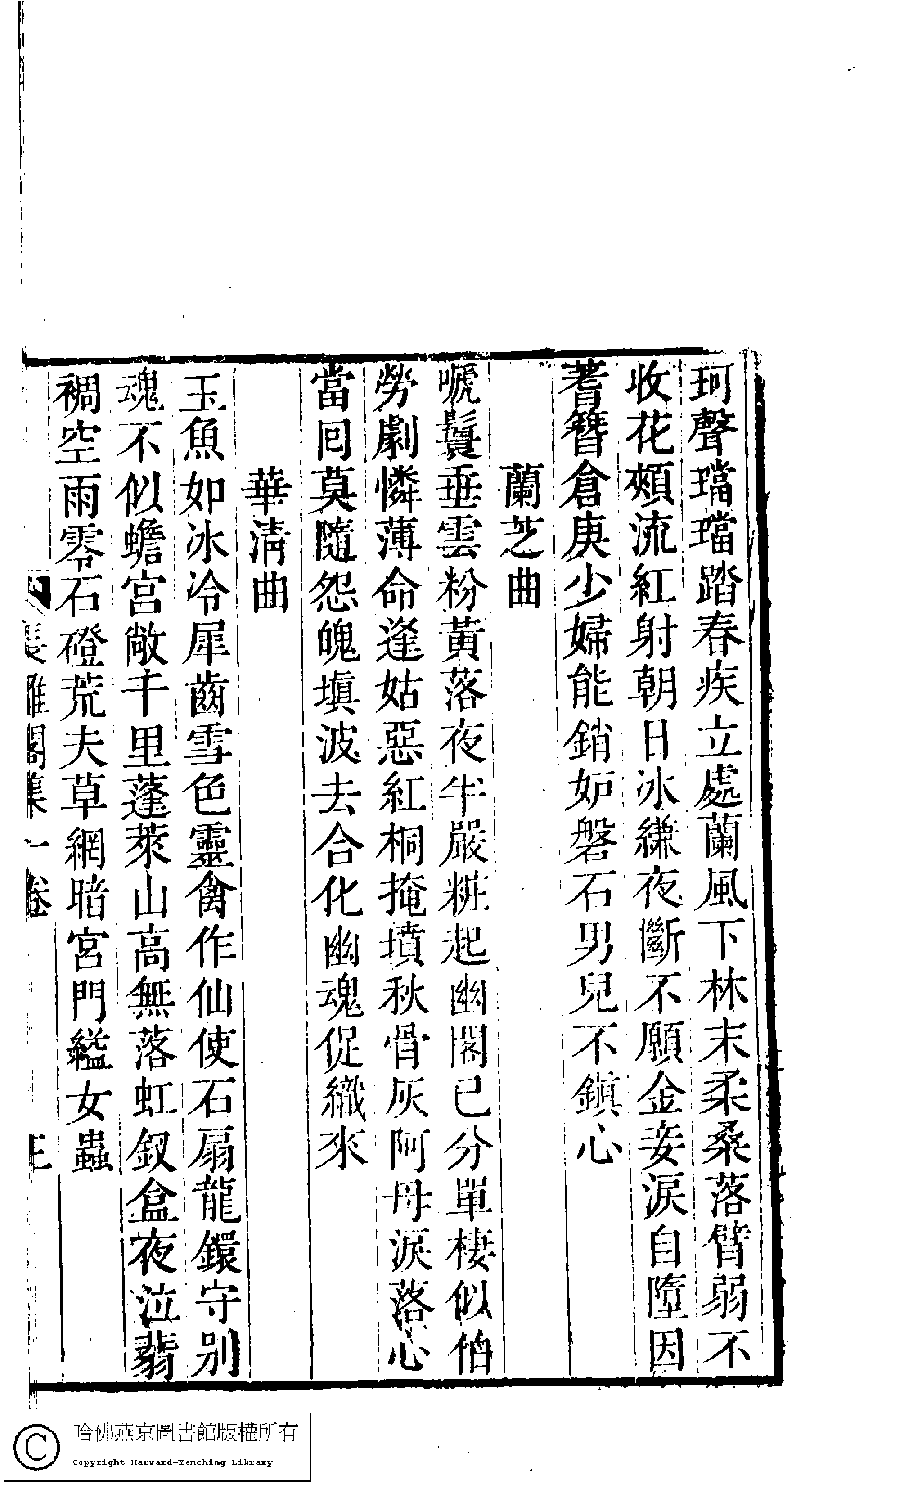 珂聲璫璫踏春疾立處蘭風下林末柔桑落臂弱不
收花頰流紅射朝日冰縑夜斷不願金妾淚自墮因
蓍簪倉庚少婦能銷妒磐石男兒不鎮心
蘭芝曲
嗁鬟垂雲粉黃落夜半嚴粧起幽閣已分單棲似伯
勞劇憐薄命逢姑惡紅桐掩墳秋骨灰阿母淚落心
當囘莫隨怨魄塡波去合化幽魂促織來
華清曲
玉魚如冰冷犀齒雪色靈禽作仙使石扇龍鐶守別
魂不似蟾宮敞千里蓬萊山高無落虹釵盒夜泣翡
裯空雨零石磴荒夫草網暗宮門縊女蟲
長離閣集一卷
哈佛燕京圖書館版權所有
Copyright Harvard-Yenching Library